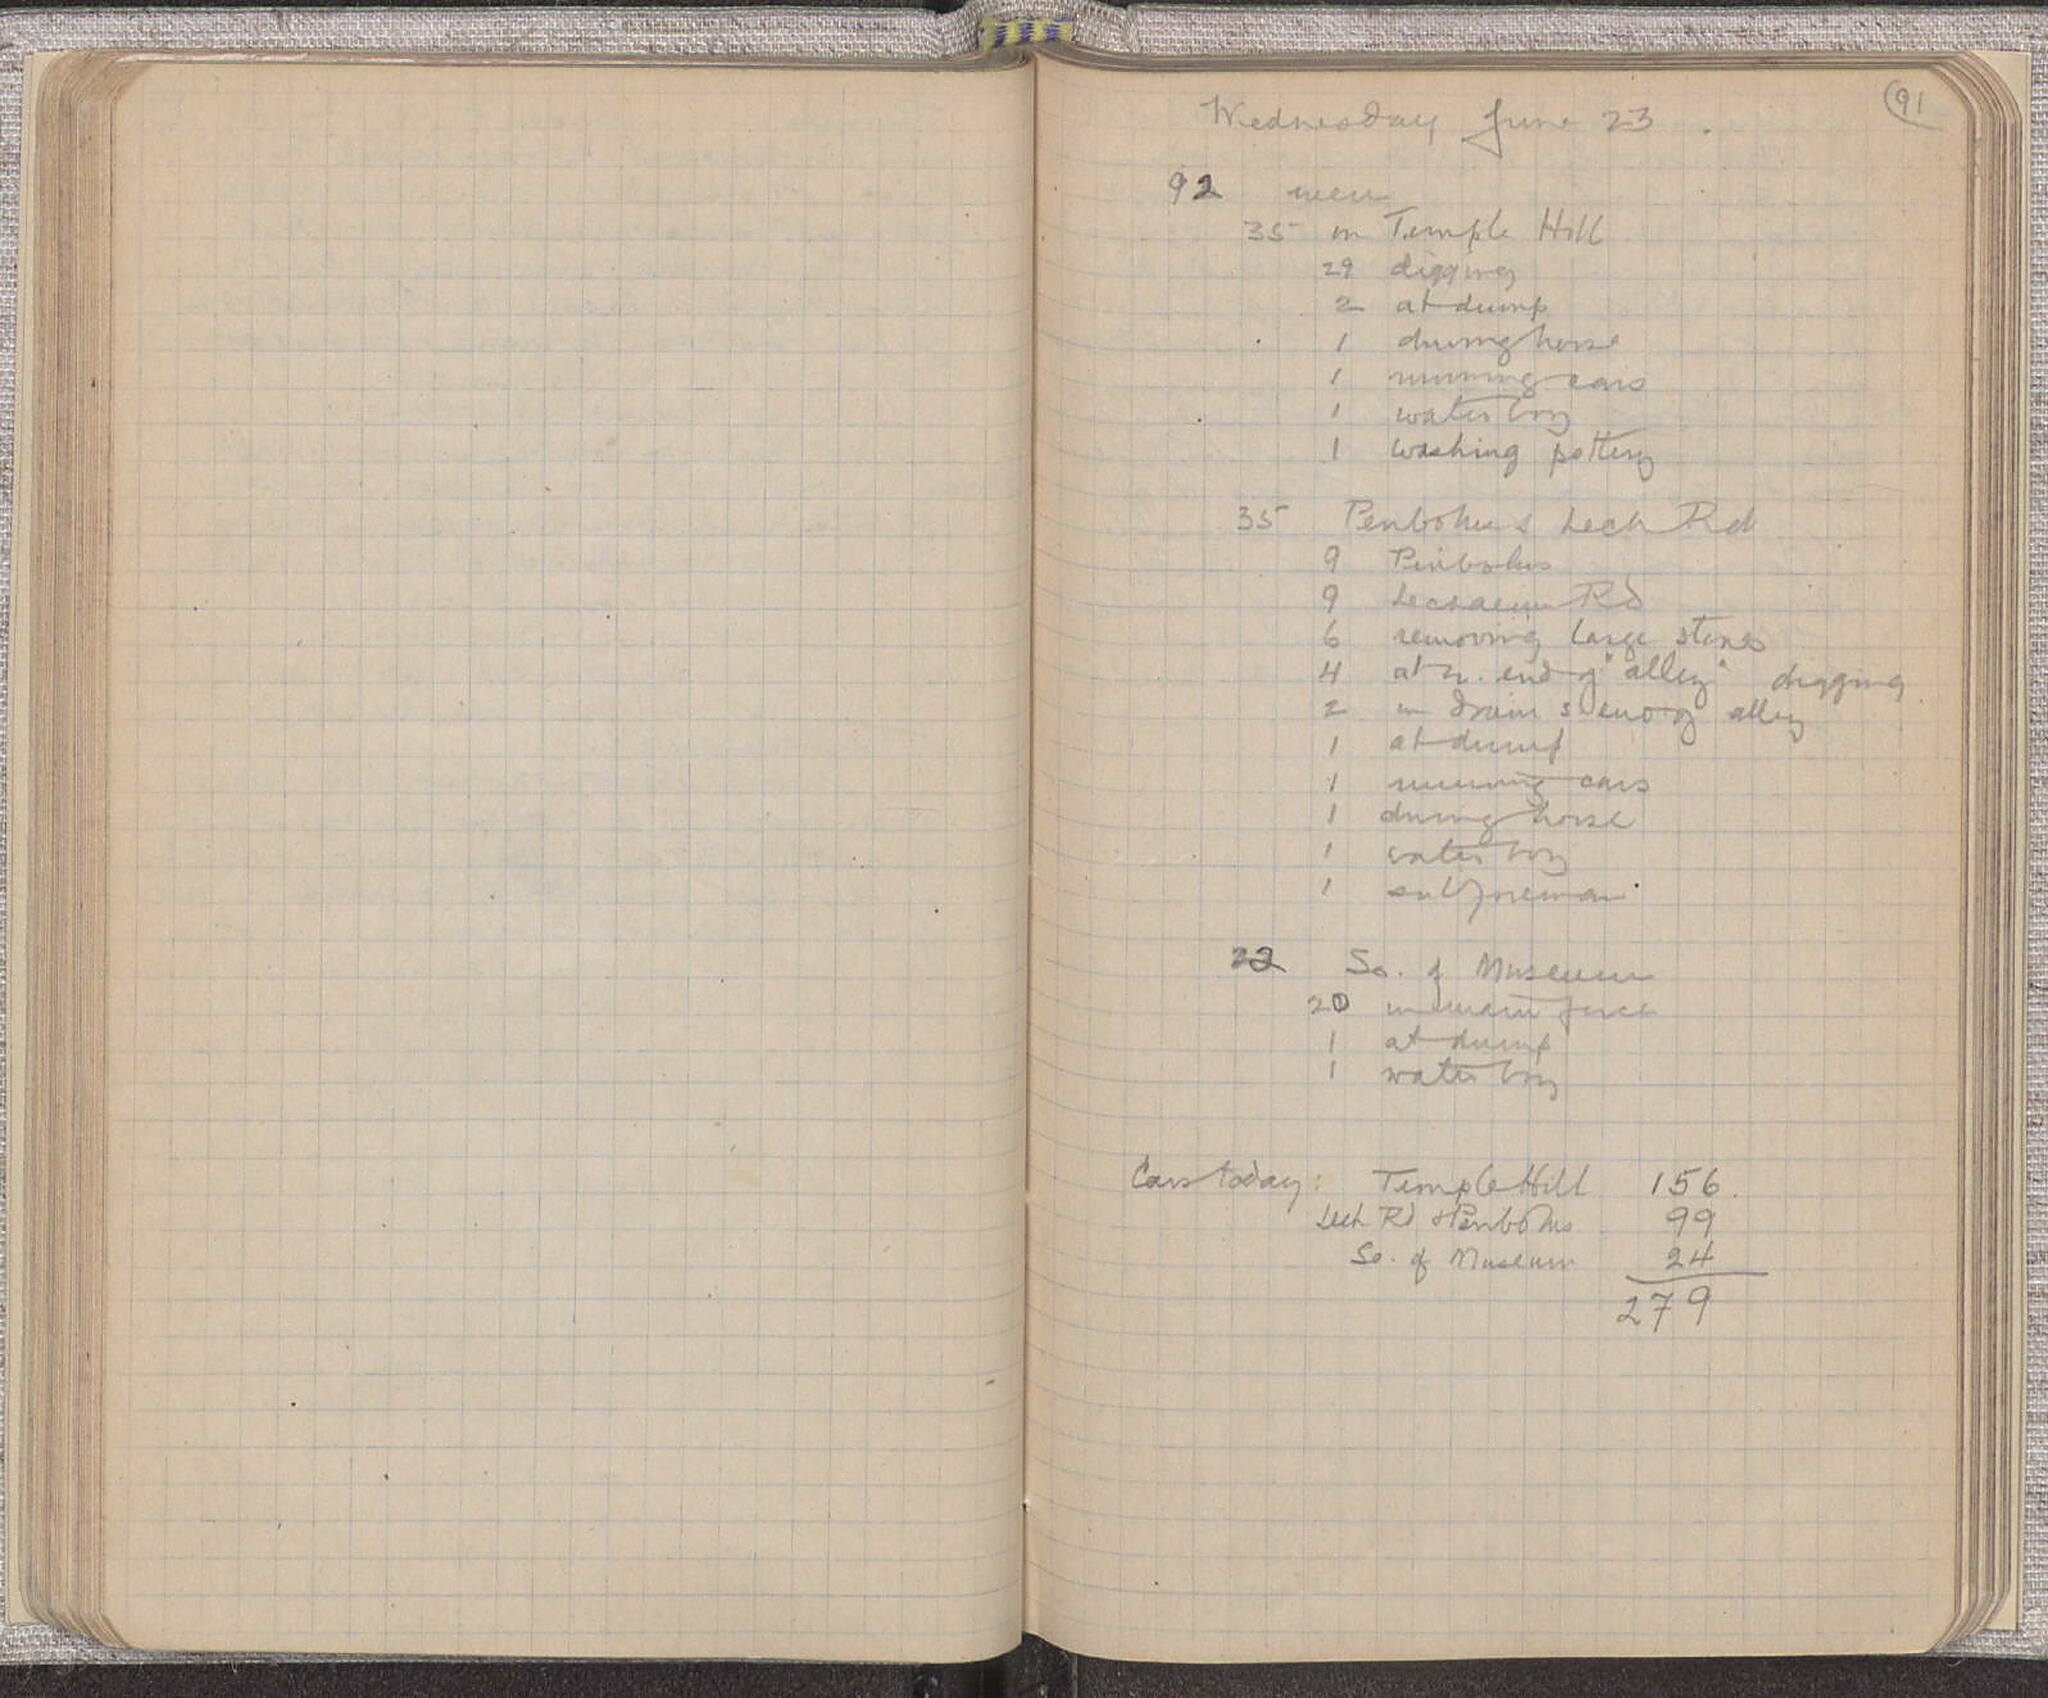 91
Wednesday June 23.
92 men
35 in Temple Hill
29 digging
2 at dump
1 driving horse
1 running cars
1 water boy
1 washing pottery
35 Peribolus & Lech Rd
9 Peribolus
9 Lechaeum Rd
6 removing large stones
4 at n. end of "alley" digging
2 in drain s end of alley
1 at dump
1 running cars
1 driving horse
1 water boy
1 subforeman
22 So. of Museum
20 in main force
1 at dump
1 water boy
Cars today: Temple Hill 156.
Lech Rd & Peribolus 99
So. of Museum 24
279